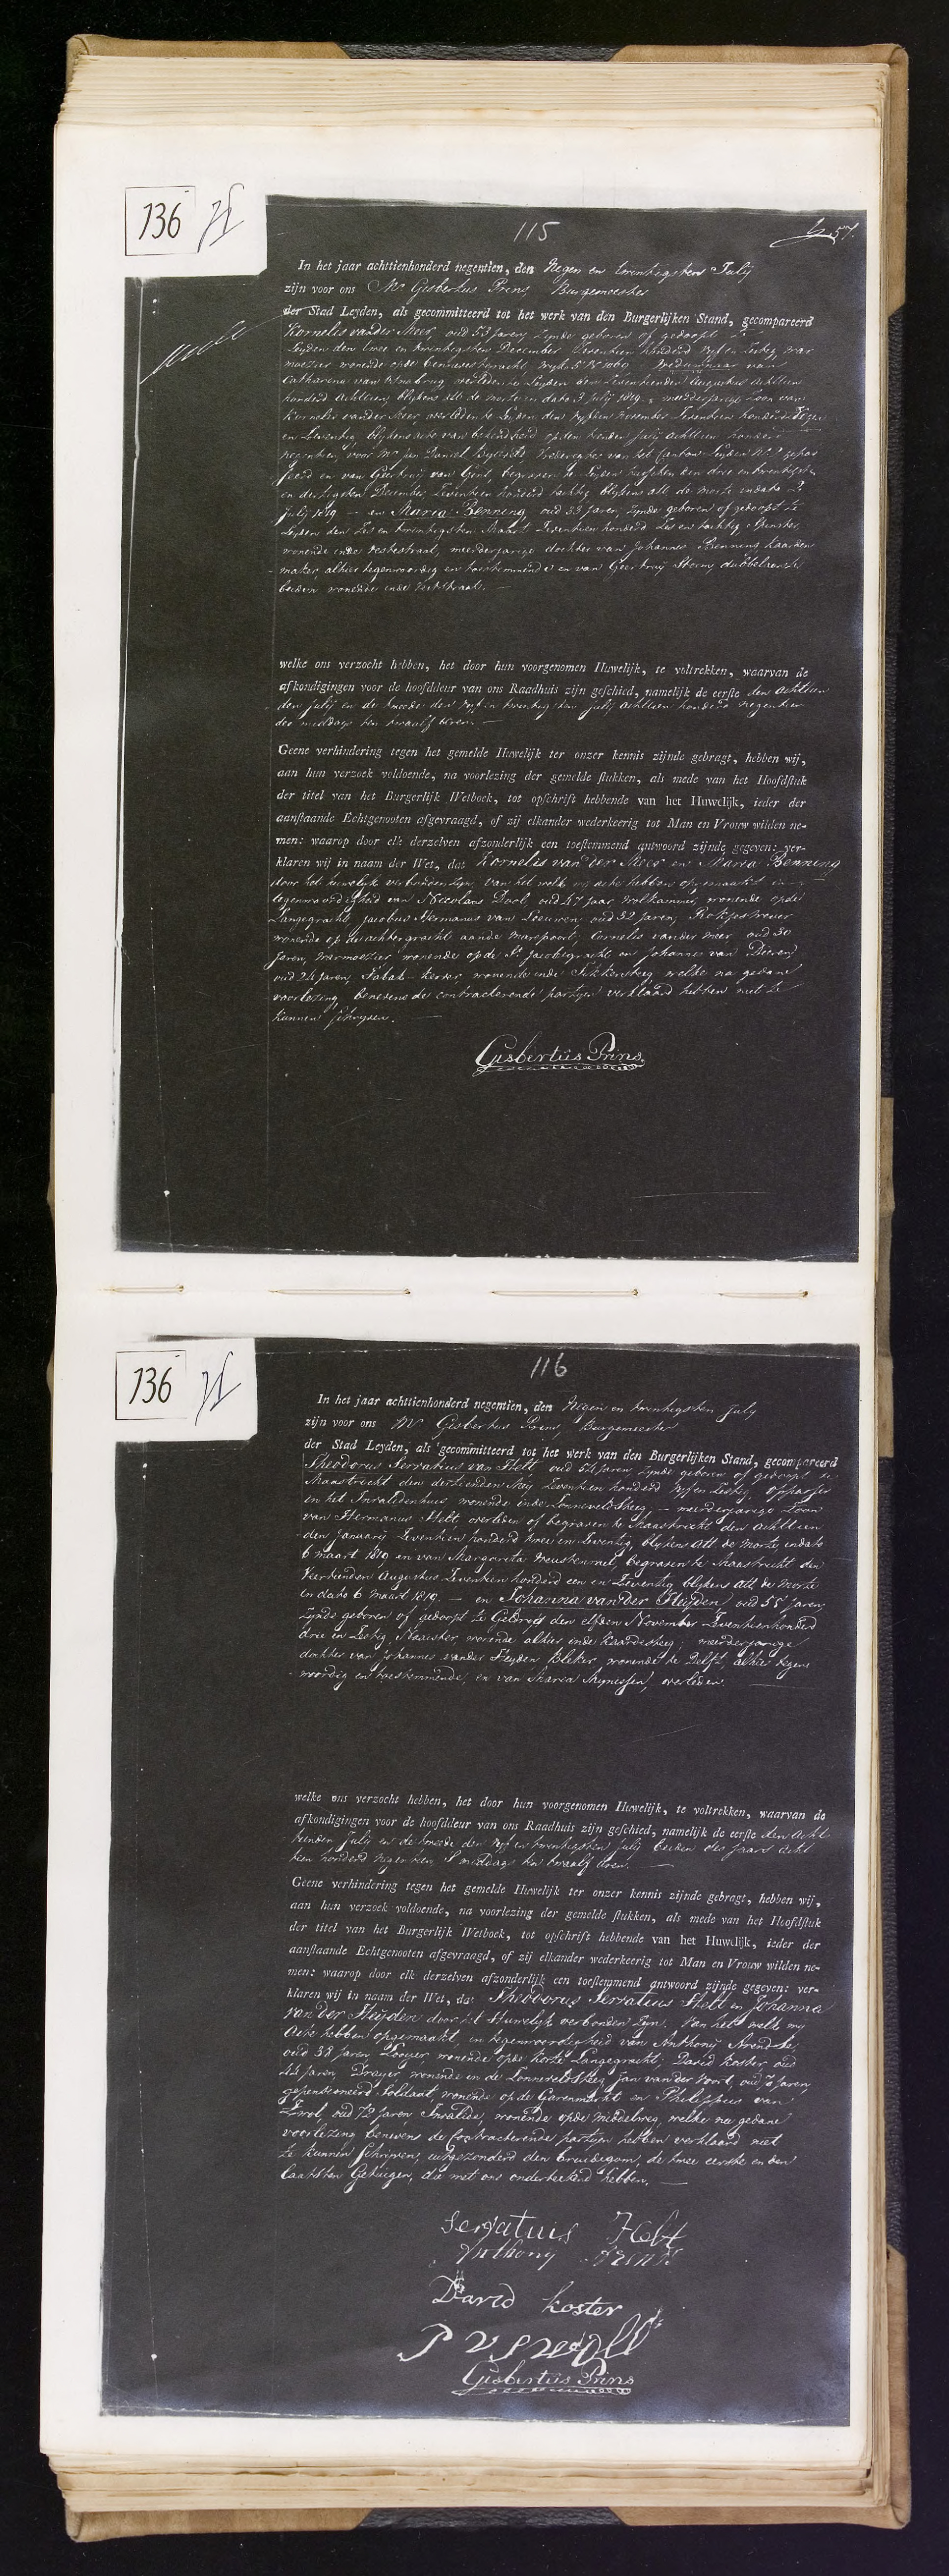 136
115
57.
In het jaar achttienhonderd negentien, den Negen en twintigsten Julij
zijn voor ons Mr Gisbertus Prins, Burgemeester
der Stad Leyden, als gecommitteerd tot het werk van den Burgerlijken Stand, gecompareerd
Kornelis vander Meer, oud 53 Jaren, zynde geboren of gedoopt te
Leyden den twee en twintigsten December Zeventien honderd vyf en Zestig, War
moezier wonende op de wyk 5 N 1060 Weduwnaar van
Catharina van overleden te Leyden den Zeventienden Augustus achttien
honderd Achttien, blykens att de morte in dato 3 July 1819. meerderjarige Zoon van
Kornelis vander Meer overleden te Leyden den vyftien November Zeventien honderd Negen
en Zeventig, blykens acte van bekendheid op den tienden July achttien honderd
negentien, voor Mr Jan Daniel Vrederegter van het Canton Leyden No 2 gepas
seerd en van Geertruij van Gent, begraven te Leyden tusschen den drie en twintigsten
en dertigsten December Zeventien honderd tachtig blykens att, de morte in dato 2
July 1819 — en Maria Benning oud 33 jaren, zynde geboren of gedoopt te
Leyden den Zes en twintigsten Maart Zeventien honderd Zes en tachtig, Spinster,
wonende inde Vestestraat, meerderjarige dochter van Johannes Benning Kaarden
maker, alhier tegenwoordig en toestemmende en van Geertruij Storm, dubbelaarste
beiden wonende inde Vestestraat. —
welke ons verzocht hebben, het door hun voorgenomen Huwelijk, te voltrekken, waarvan de
afkondigingen voor de hoofddeur van ons Raadhuis zijn geschied, namelijk de eerste den achttien
den july en de tweede den vyf en twintigsten july achttien honderd negentien
des middags ten twaalf uren. —
Geene verhindering tegen het gemelde Huwelijk ter onzer kennis zijnde gebragt, hebben wij,
aan hun verzoek voldoende, na voorlezing der gemelde stukken, als mede van het Hoofdstuk
der titel van het Burgerlijk Wetboek, tot opschrift hebbende van het Huwelijk, ieder der
aanstaande Echtgenooten afgevraagd, of zij elkander wederkeerig tot Man en Vrouw wilden ne-
men: waarop door elk derzelven afzonderlijk een toestemmend antwoord zijnde gegeven: ver-
klaren wij in naam der Wet, dat Kornelis van der Meer en Maria Benning
door het huwelyk verbonden zyn, van het welk wij acte hebben opgemaakt in
tegenwoordigheid van Nicolaas Dool, oud 47 jaar, wolkammer, wonende op de
Langegracht, Jacobus Hermanus van Leeuwen oud 32 Jaren, Rokjeswever
wonende op de achtergracht aande Marepoort, Cornelis vander Meer, oud 30
Jaren, warmoezier, wonende op de St Jacobsgracht en Johannes van Dieren
oud 24 jaren, Tabak-kerver, wonende inde welke na gedane
voorlezing, benevens de contracterende partyen verklaard hebben niet te
kunnen schryven. —
Gisbertus Prins.
136
116
In het jaar achttienhonderd negentien, den Negen en twintigsten July
zijn voor ons Mr Gisbertus Prins, Burgemeester
der Stad Leyden, als gecommitteerd tot het werk van den Burgerlijken Stand, gecompareerd
Theodorus Servatius van Helt oud 54 Jaren, zynde geboren of gedoopt te
Maastricht den dertienden Mey Zeventien honderd vyf en Zestig, Oppasser
in het Invalidenhuis, wonende inde Lonneveldsteeg, — meerderjarige Zoon
van Hermanus Helt, overleden of begraven te Maastricht den achttien
den January Zeventien honderd twee en Zeventig, blykens att, de Morte, in dato
6 maart 1819 en van Margareta begraven te Maastricht den
Veertienden Augustus Zeventien honderd een en Zeventig blykens att, de Morte
in dato 6 maart 1819. — en Johanna van der Heyden, oud 55 Jaren
Zynde geboren of gedoopt te den elfden November Zeventienhonderd
drie en Zestig, Naaister, wonende alhier inde Kaardesteeg; meerderjarige
dochter van Johannes vander Heyden Bleker wonende te Delft, alhier tegen
woordig en toestemmende, en van Maria overleden. —
welke ons verzocht hebben, het door hun voorgenomen Huwelijk, te voltrekken, waarvan de
afkondigingen voor de hoofddeur van ons Raadhuis zijn geschied, namelijk de eerste den acht
tienden July en de tweede den vyf en twintigsten july beiden des jaars acht
tien honderd negentien, S'middags ten twaalf uren. —
Geene verhindering tegen het gemelde Huwelijk ter onzer kennis zijnde gebragt, hebben wij,
aan hun verzoek voldoende, na voorlezing der gemelde stukken, als mede van het Hoofdstuk
der titel van het Burgerlijk Wetboek, tot opschrift hebbende van het Huwelijk, ieder der
aanstaande Echtgenooten afgevraagd, of zij elkander wederkeerig tot Man en Vrouw wilden ne-
men: waarop door elk derzelven afzonderlijk een toestemmend antwoord zijnde gegeven: ver-
klaren wij in naam der Wet, dat Theodorus Servatius Helt en Johanna
van der Heyden door het Huwelyk verbonden zyn. Van het welk wy
Acte hebben opgemaakt, in tegenwoordigheid van Anthony Arendse,
oud 38 Jaren, Looyer, wonende op de korte Langegracht; David Koster, oud
44 Jaren, Drayer wonende in de Lonneveldsteeg, Jan van der Voort, oud 70 Jaren,
gepensioneerd Soldaat, wonende op de Garenmarkt en Philippus van
Zwol, oud 72 Jaren Invalide, wonende op de Middelweg, welke na gedane
voorlezing benevens de Contracterende partyen hebben verklaard niet
te kunnen schryven, uitgezonderd den bruidegom, de twee eerste en den
laatsten Getuigen, die met ons onderteekend hebben. —
Servatius Helt
Anthony Arends
David Koster
P v Swoll
Gisbertus Prins